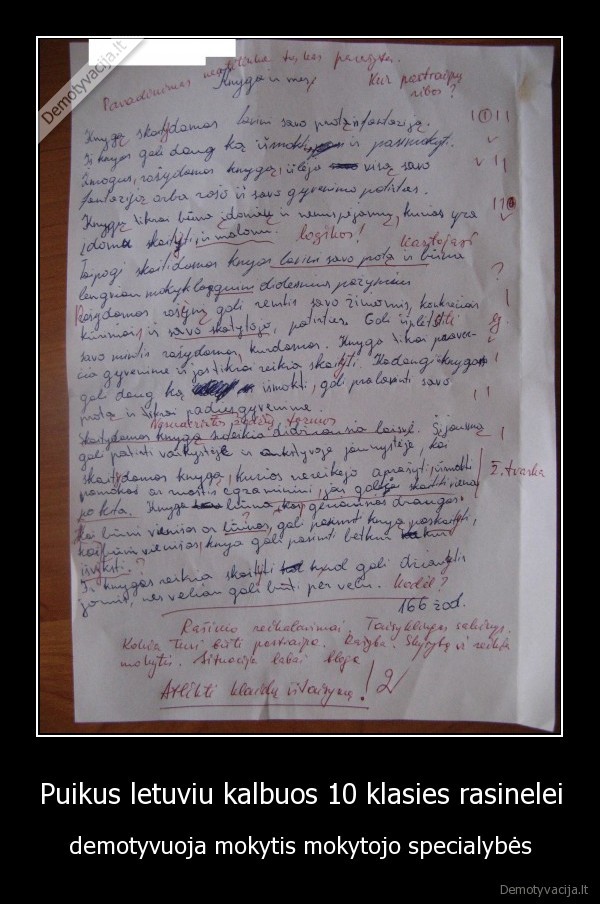 Demotyvacija.lt
Pavadinimas neatitinka parašyta.
Knyga ir mes
Kur pastraipų
ribos?
Knygą skaitydamas lavini savo protą, fantaziją.
Iš knygos gali daug ką išmokti ir pasimokyt.
Žmogus, rašydamas knygą, įdėjo visą savo
fantaziją arba rašo iš savo gyvenimo patirties.
Knygų tikrai būna įdomių ir nenuspėjamų, kurias yra
įdomu skaityti, ir malonu.
logikos!
Kartojasi
Taipogi skaitidamas knygas lavini savo protą ir būna
lengviau mokykloje
Rašydamas rašinį gali remtis savo žiniomis, konkrečiais
kūriniais, ir savo skaitytojo, patirties. Gali išplėsti
savo mintis rašydamas, kurdamas. Knyga tikrai praver-
čia gyvenime ir ją tikrai reikia skaityti. Kadangi knyga
gali daug ką išmokti, gali pralavinti savo
protą ir tikrai padės gyvenime.
Skaitydamas knygą suteikia didžiausią laisvę. Šį jausmą
gali patirti vaikystėje ir ankstyvoje jaunystėje, kai
skaitydamas knygą, kurios nereikėjo aprašyti, išmokti
pamokos ar ruoštis egzaminui, jas galėjo skaityti vieną
po kito. Knyga būna kaip geriausias draugas.
ž. tvarka
Kai būni vienišas ar liūdnas, gali paimti knygą paskaityti,
kai būni vienišas, knyga gali paimti betkur
išvykti.
?
Ir knygas reikia skaityti kol gali džiaugtis
jomis, nes vėliau gali būti per vėlu.
Kodėl?
166 žod.
Rašinio reikalavimai. Taisyklingas sakinys.
Kokia turi būti pastraipa. Rašyba. Skyrybą ir reikėtų
mokytis. Situacija labai bloga
Atlikti klaidų ištaisymą! 2
Puikus letuviu kalbuos 10 klasies rasinelei
demotyvuoja mokytis mokytojo specialybės
Demotyvacija.lt